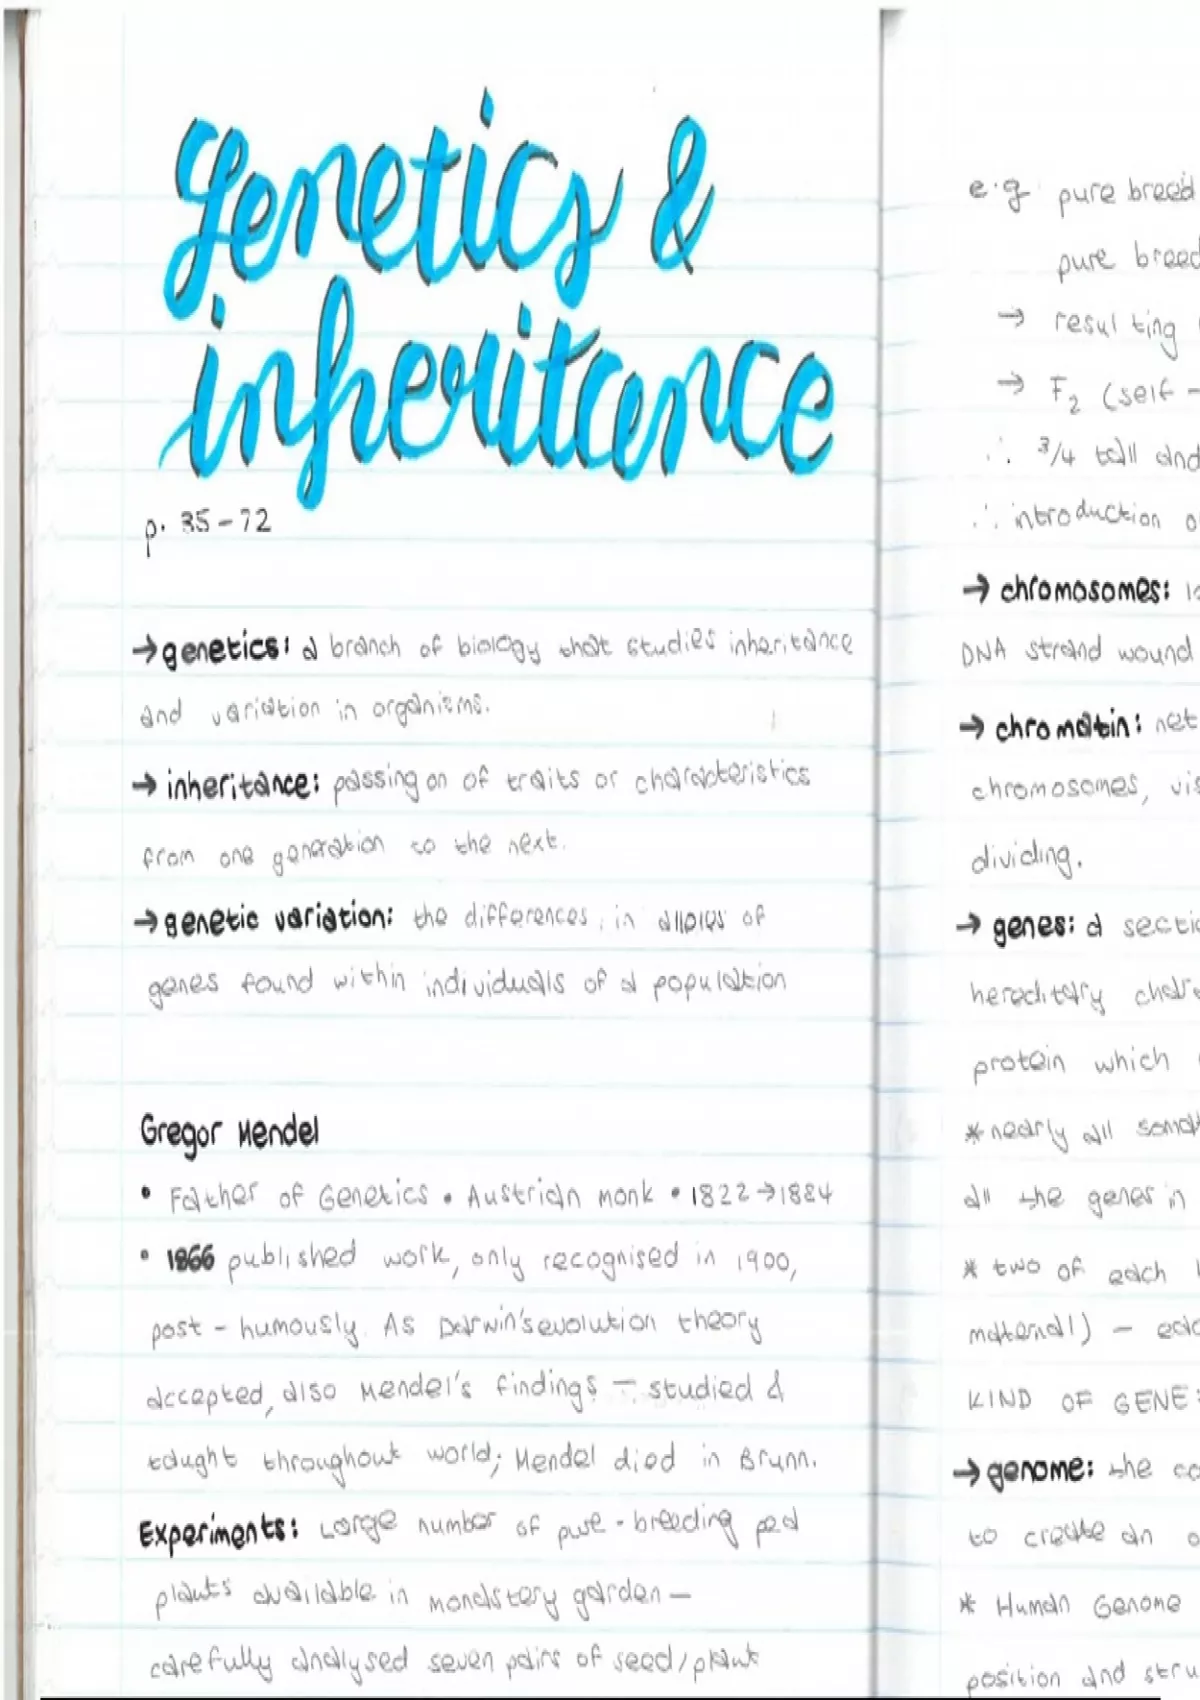 genetics &
inheritance
p. 35-72
→ genetics: a branch of biology that studies inheritance
and variation in organisms.
→ inheritance: passing on of traits or characteristics
from one generation to the next.
→ genetic variation: the differences in alleles of
genes found within individuals of a population
Gregor Mendel
• Father of Genetics • Austrian monk • 1822→1884
• 1866 published work, only recognised in 1900,
post-humously. As Darwin's evolution theory
accepted, also Mendel's findings - studied &
taught throughout world; Mendel died in Brunn.
Experiments: Large number of pure-breeding pea
plants available in monastery garden —
carefully analysed seven pairs of seed/plant
e.g pure breed
pure breed
→ resulting
→ F₂ (self-
∴ 3/4 tall and
∴ introduction
→ chromosomes:
DNA strand wound
→ chromatin: net
chromosomes,
dividing.
→ genes: a
hereditary
protein which
* nearly all
all the genes in
* two of each
maternal) —
KIND OF GENE
→ genome: the
to create an
* Human Genome
position and